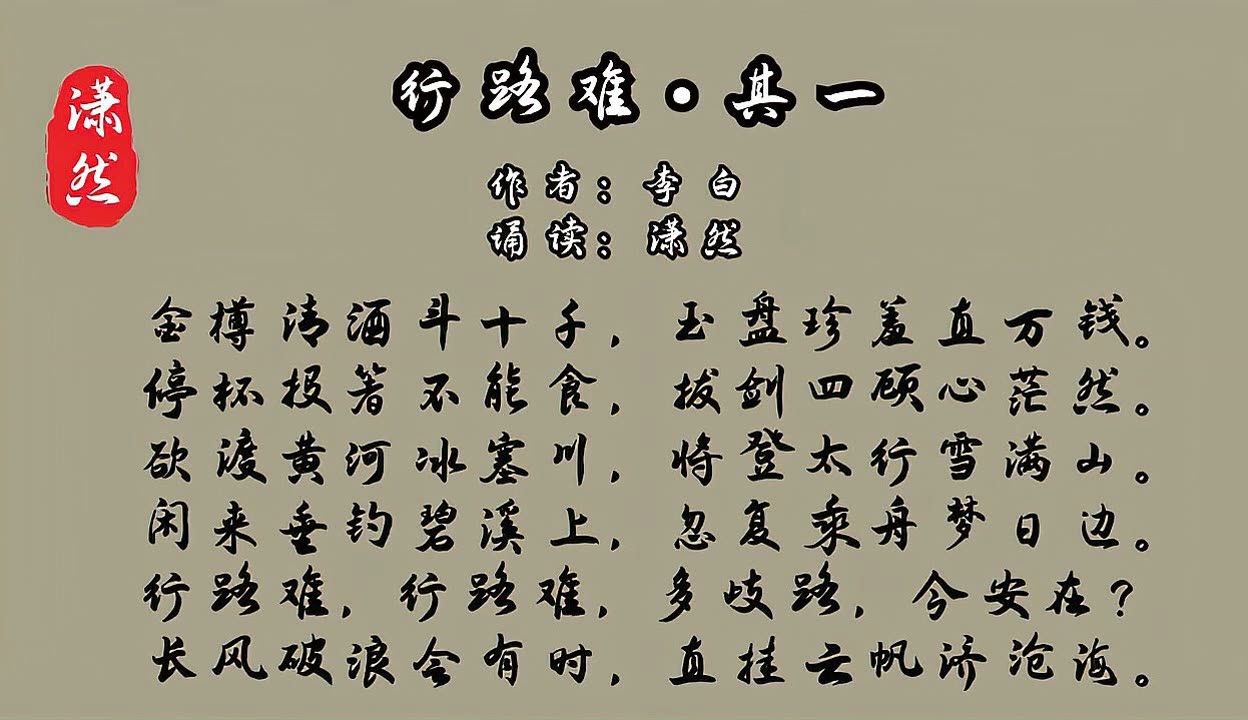 潇然
行路难·其一
作者：李白
诵读：潇然
金樽清酒斗十千，玉盘珍羞直万钱。
停杯投箸不能食，拔剑四顾心茫然。
欲渡黄河冰塞川，将登太行雪满山。
闲来垂钓碧溪上，忽复乘舟梦日边。
行路难，行路难，多歧路，今安在？
长风破浪会有时，直挂云帆济沧海。